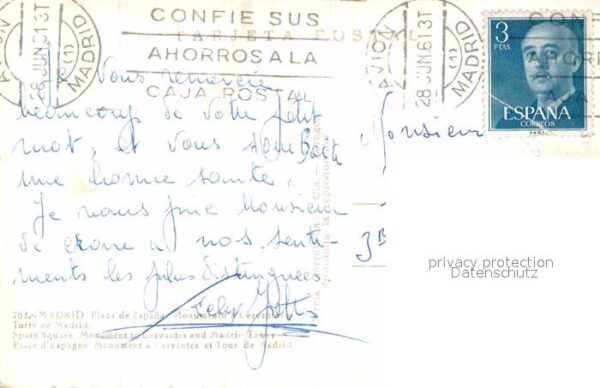 CONFIE SUS
AHORROS A LA
CAJA POSTAL
AVION
28 JUN. 61 3T
MADRID
(1)
AVION
28 JUN. 61 3T
MADRID
(1)
CONFIE
AHORRO
TARJETA POSTAL
3
PTAS
ESPAÑA
CORREOS
Je vous remercie
beaucoup de votre petit
mot, et vous souhaite
une bonne santé.
Je vous prie Monsieur
de croire a nos senti-
ments les plus distingués
Monsieur
3B
privacy protection
Datenschutz
262.-MADRID Plaza de España. Monumento a Cervantes
Torre de Madrid.
Spain Square. Monument to Cervantes and Madrid Tower
Place d'Espagne Monument a Cervantes et Tour de Madrid.